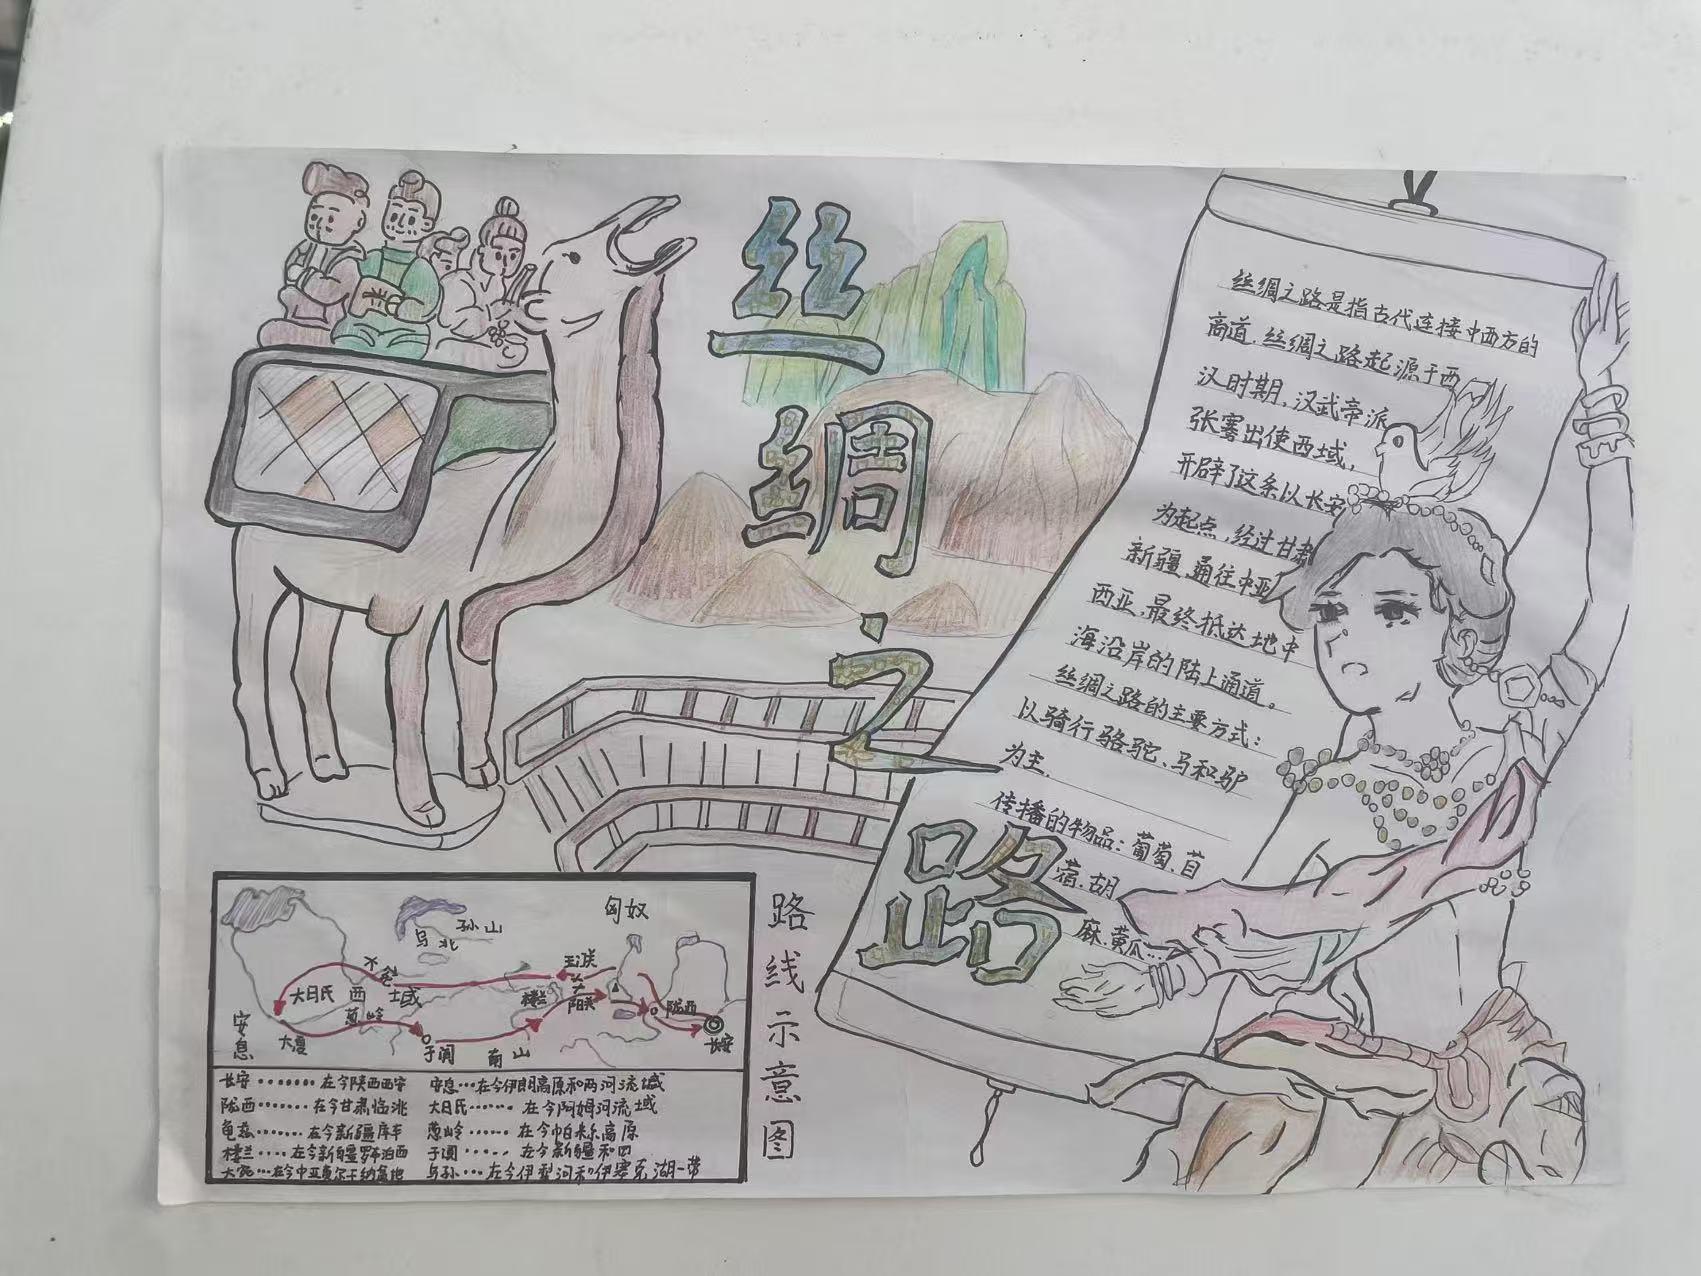 丝绸之路
丝绸之路是指古代连接中西方的
商道.丝绸之路起源于西
汉时期,汉武帝派
张骞出使西域,
开辟了这条以长安
为起点,经过甘肃
新疆,通往中亚
西亚,最终抵达地中
海沿岸的陆上通道。
丝绸之路的主要方式:
以骑行骆驼、马和驴
为主.
传播的物品:葡萄.苜
蓿.胡
麻.黄瓜...
路线示意图
匈奴
乌孙
北山
玉门关
大宛
大月氏
西域
楼兰
阳关
陇西
葱岭
安息
大夏
于阗
南山
长安
长安........在今陕西西安
安息...在今伊朗高原和两河流域
陇西.......在今甘肃临洮
大月氏......在今阿姆河流域
龟兹.......在今新疆库车
葱岭......在今帕米尔高原
楼兰....在今新疆罗布泊西
于阗......在今新疆和田
大宛...在今中亚费尔干纳盆地
乌孙...在今伊犁河和伊塞克湖一带